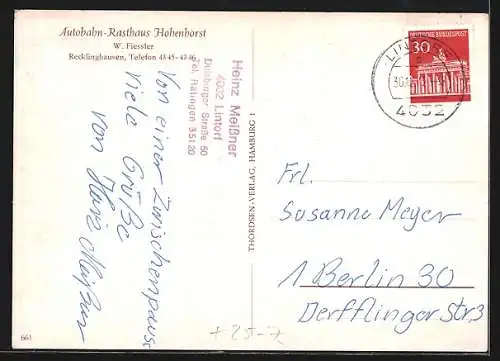 Autobahn-Rasthaus Hohenhorst
W. Fiessler
Recklinghausen, Telefon 4345-4346
Heinz Meißner
4032 Lintorf
Duisburger Straße 50
Tel. Ratingen 35120
Von einer Zwischenpause
viele Grüße
von Heinz Meißner
THORDSEN-VERLAG, HAMBURG 1
DEUTSCHE BUNDESPOST
30
4032
Frl.
Susanne Meyer
1 Berlin 30
Derfflingerstr. 3
661